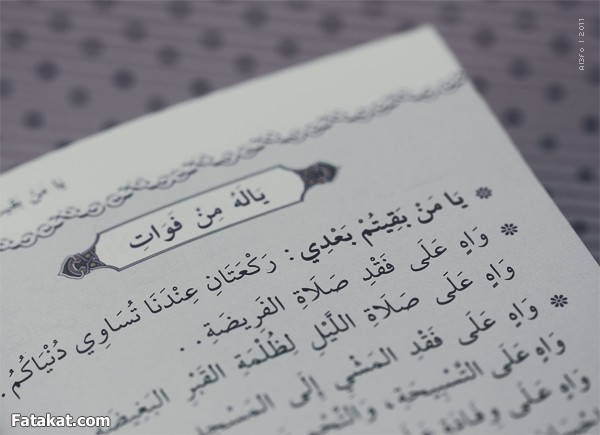 AI3FO | 2011
يَا مَنْ بَقِيتُ
يَالَهُ مِنْ فَوَاتِ
* يَا مَنْ بَقِيتُمْ بَعْدِي : رَكْعَتَانِ عِنْدَنَا تُسَاوِي دُنْيَاكُمْ.
* وَاهٍ عَلَى فَقْدِ صَلَاةِ الفَرِيضَةِ..
وَاهٍ عَلَى صَلَاةِ اللَّيْلِ لِظُلْمَةِ القَبْرِ البَغِيضَةِ
* وَاهٍ عَلَى فَقْدِ المَشْيِ إِلَى المَسْجِدِ
وَاهٍ عَلَى التَّسْبِيحَةِ، وَالتَّحْمِ
وَاهٍ عَلَى
Fatakat.com